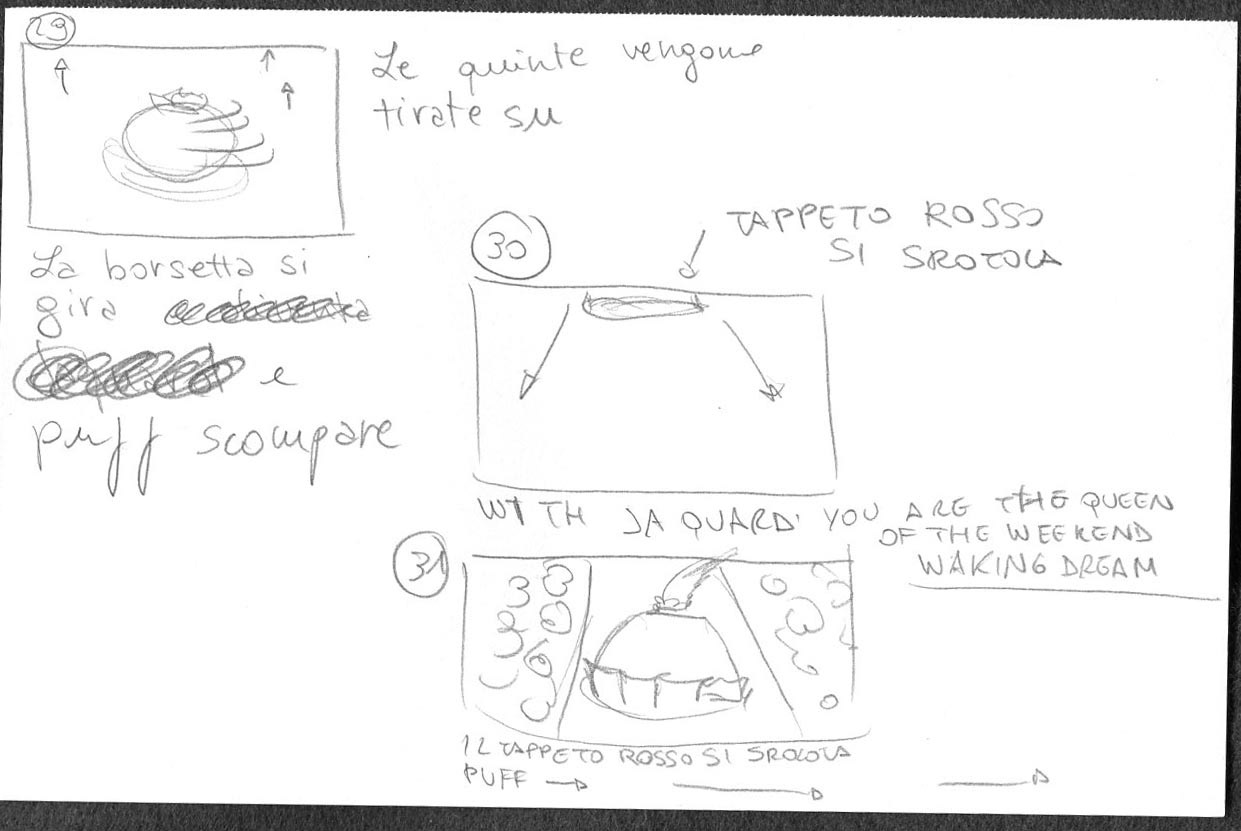 29
Le quinte vengono
tirate su
La borsetta si
gira
e
puff scompare
30
TAPPETO ROSSO
SI SROTOLA
WITH JAQUARD' YOU ARE THE QUEEN
OF THE WEEKEND
WAKING DREAM
31
IL TAPPETO ROSSO SI SROTOLA
PUFF